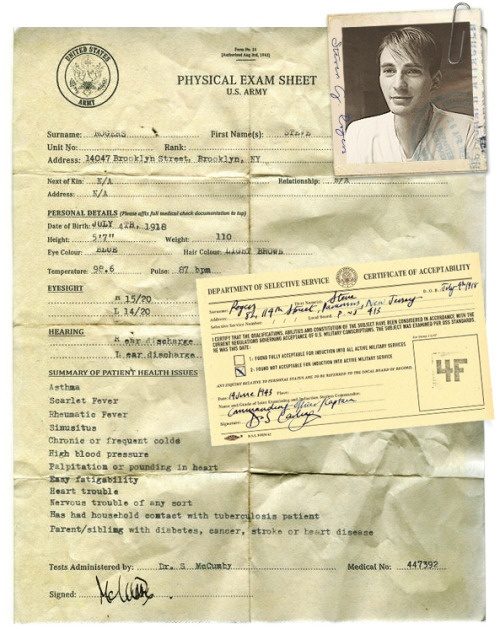 Form No 21
UNITED STATES
ARMY
PHYSICAL EXAM SHEET
U.S. ARMY
Surname: ROGERS First Name(s): STEVE
Unit No: Rank:
Address: 14047 Brooklyn Street, Brooklyn, NY
Next of Kin: N/A Relationship: N/A
Address: N/A
PERSONAL DETAILS (Please affix full medical check documentation to top)
Date of Birth: JULY 4TH, 1918
Height: 5'7" Weight: 110
Eye Colour: BLUE Hair Colour: LIGHT BROWN
Temperature: 98.6 Pulse: 87 bpm
EYESIGHT
R 15/20
L 14/20
HEARING
R ear discharge
L ear discharge
SUMMARY OF PATIENT HEALTH ISSUES
Asthma
Scarlet Fever
Rheumatic Fever
Sinusitus
Chronic or frequent colds
High blood pressure
Palpitation or pounding in heart
Easy fatigability
Heart trouble
Nervous trouble of any sort
Has had household contact with tuberculosis patient
Parent/sibling with diabetes, cancer, stroke or heart disease
Tests Administered by: Dr. S McCumby Medical No: 447392
Signed:
DEPARTMENT OF SELECTIVE SERVICE CERTIFICATE OF ACCEPTABILITY
Surname: Rogers First Name(s): Steve D.O.B. July 4th 1918
Address: 114th Street, Paramus, New Jersey
Selective Service Number: Local Board:
I CERTIFY THAT THE QUALIFICATIONS, ABILITIES AND CONSTITUTION OF THE SUBJECT HAVE BEEN CONSIDERED IN ACCORDANCE WITH THE
CURRENT REGULATIONS GOVERNING ACCEPTANCE OF U.S. MILITARY CONSCRIPTIONS. THE SUBJECT WAS EXAMINED FOR
HE WAS THIS DATE:
1. FOUND FULLY ACCEPTABLE FOR INDUCTION INTO ALL ACTIVE MILITARY SERVICES
2. FOUND NOT ACCEPTABLE FOR INDUCTION INTO ACTIVE MILITARY SERVICE
4F
ANY INQUIRY RELATIVE TO PERSONAL STATUS ARE TO BE REFERRED TO THE LOCAL BOARD OF RECORD.
Date: 14 June 1943 Place:
Name and Grade of Joint Examining and Induction Station Commander:
Commanding Officer
Signature: